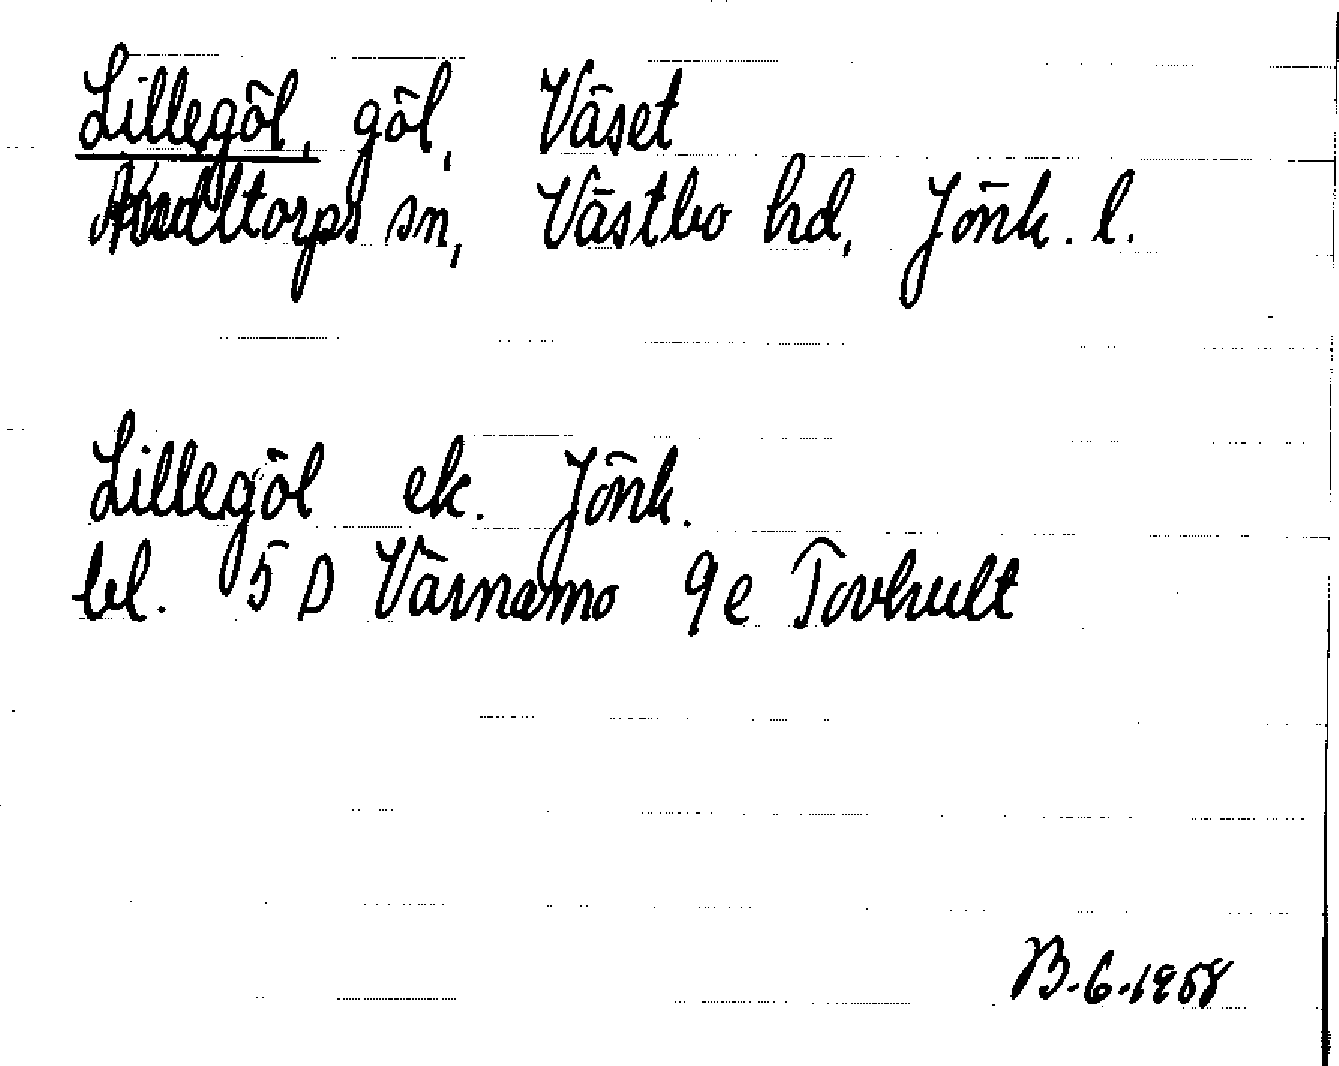 Lillegöl, göl, Väset
torps sn, Västbo hd, Jönk. l.
Lillegöl ek. Jönk.
bl. 5 D Värnamo 9e Tovhult